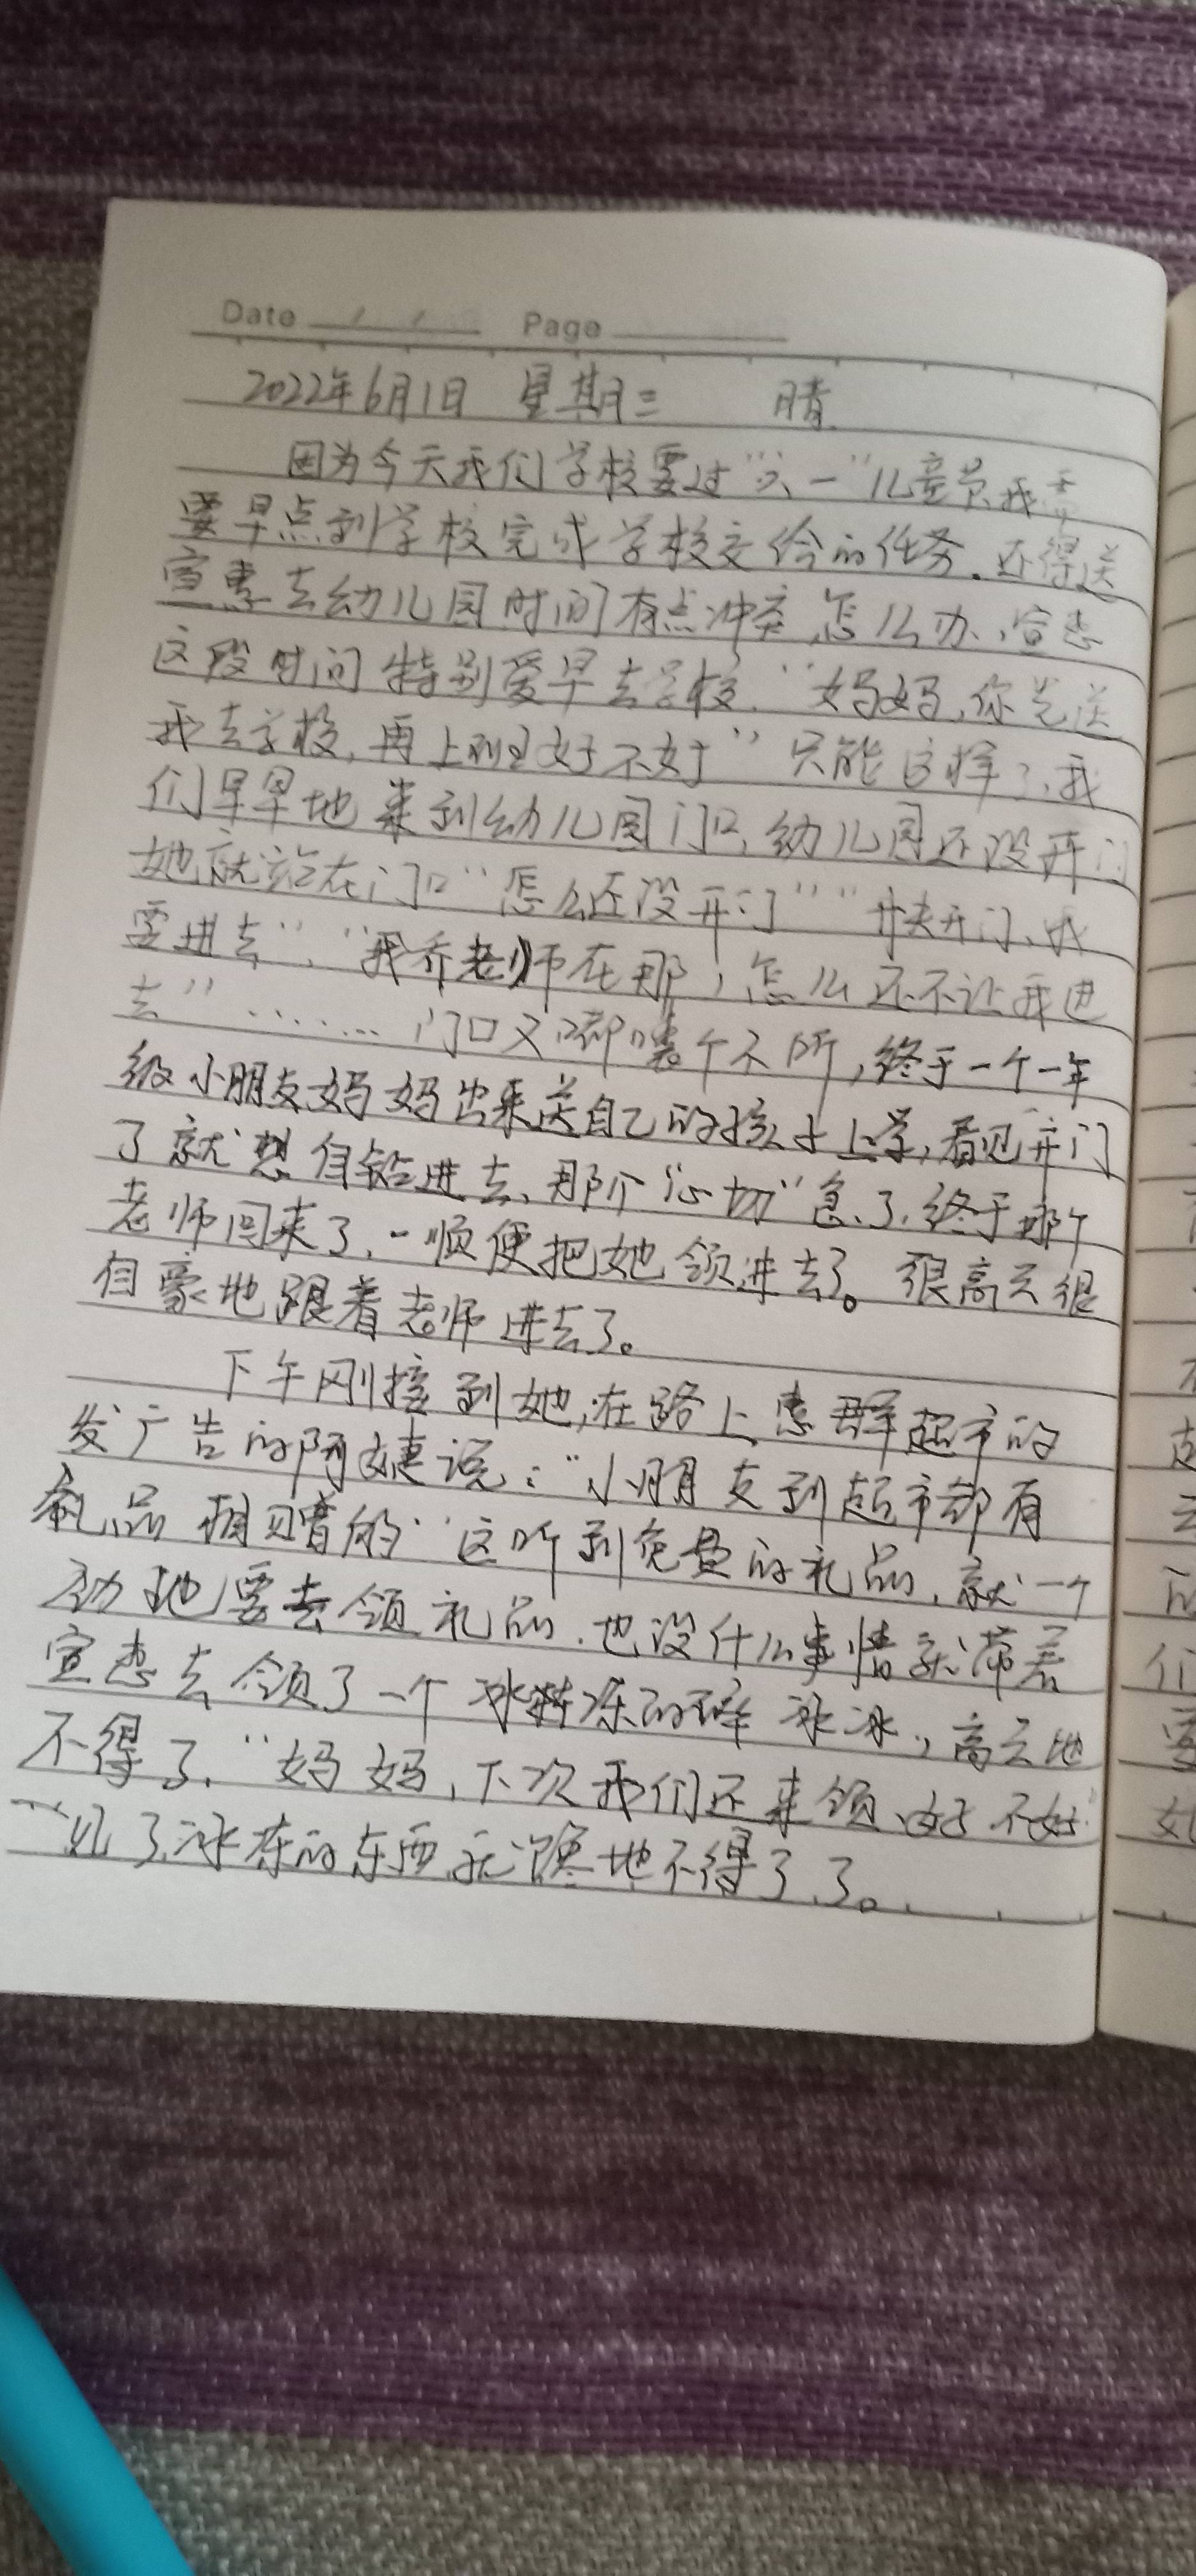 Date / / Page
2022年6月1日 星期三 晴
因为今天我们学校要过“六一”儿童节,我需
要早点到学校完成学校交给的任务。还得送
宣惠去幼儿园时间有点冲突,怎么办,宣惠
这段时间特别爱早去学校,“妈妈,你先送
我去学校,再上班好不好”只能这样了,我
们早早地来到幼儿园门口,幼儿园还没开门
她就站在门口“怎么还没开门”“快开门,我
要进去”,“我乔老师在那,怎么还不让我进
去”……门口又嘟囔个不听,终于一个一年
级小朋友妈妈出来送自己的孩子上学,看见开门
了就想自钻进去,那个“心切”急了,终于那个
老师回来了,顺便把她领进去了。很高兴很
自豪地跟着老师进去了。
下午刚接到她,在路上惠群超市的
发广告的阿姨说:“小朋友到超市都有
礼品相赠的”这听到免费的礼品,就一个
劲地要去领礼品,也没什么事情就带着
宣惠去领了一个冰冻的碎冰冰,高兴地
不得了,“妈妈,下次我们还来领,好不好”
见了冰冻的东西就馋地不得了了。